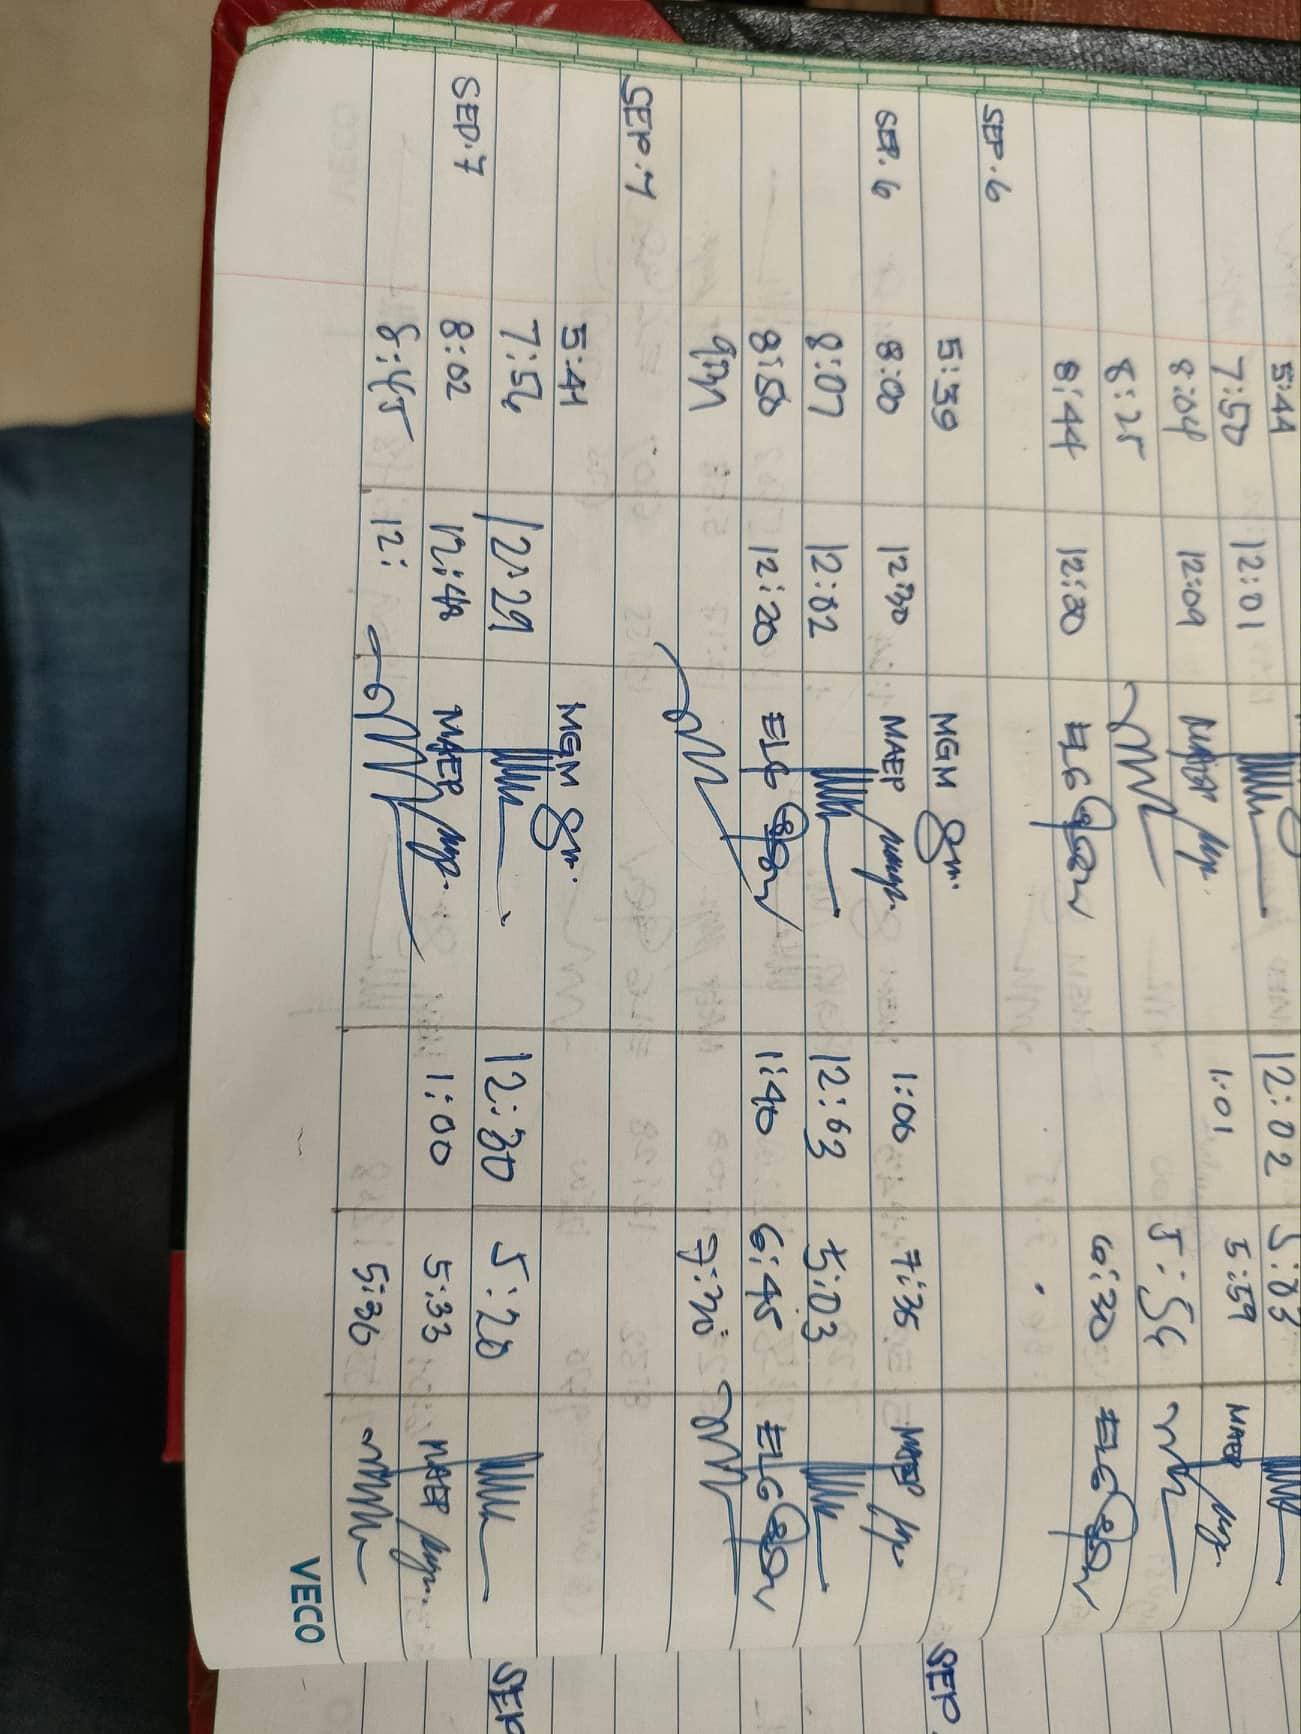 5:44
7:50 12:01 12:02 5:03
8:04 12:09 MAEP 1:01 5:59 MAEP
8:25 5:54
8:44 12:30 ELG 6:30 ELG
SEP. 6
5:39 MGM
SEP. 6 8:00 12:30 MAEP 1:06 7:35 MAEP
8:07 12:02 12:03 5:03
8:50 12:20 ELG 1:40 6:45 ELG
7:30
SEP. 7
5:41 MGM
7:56 12:29 12:30 5:20
SEP. 7 8:02 12:48 MAEP 1:00 5:33 MAEP
8:45 12: 5:36
VECO
SEP.
SEP